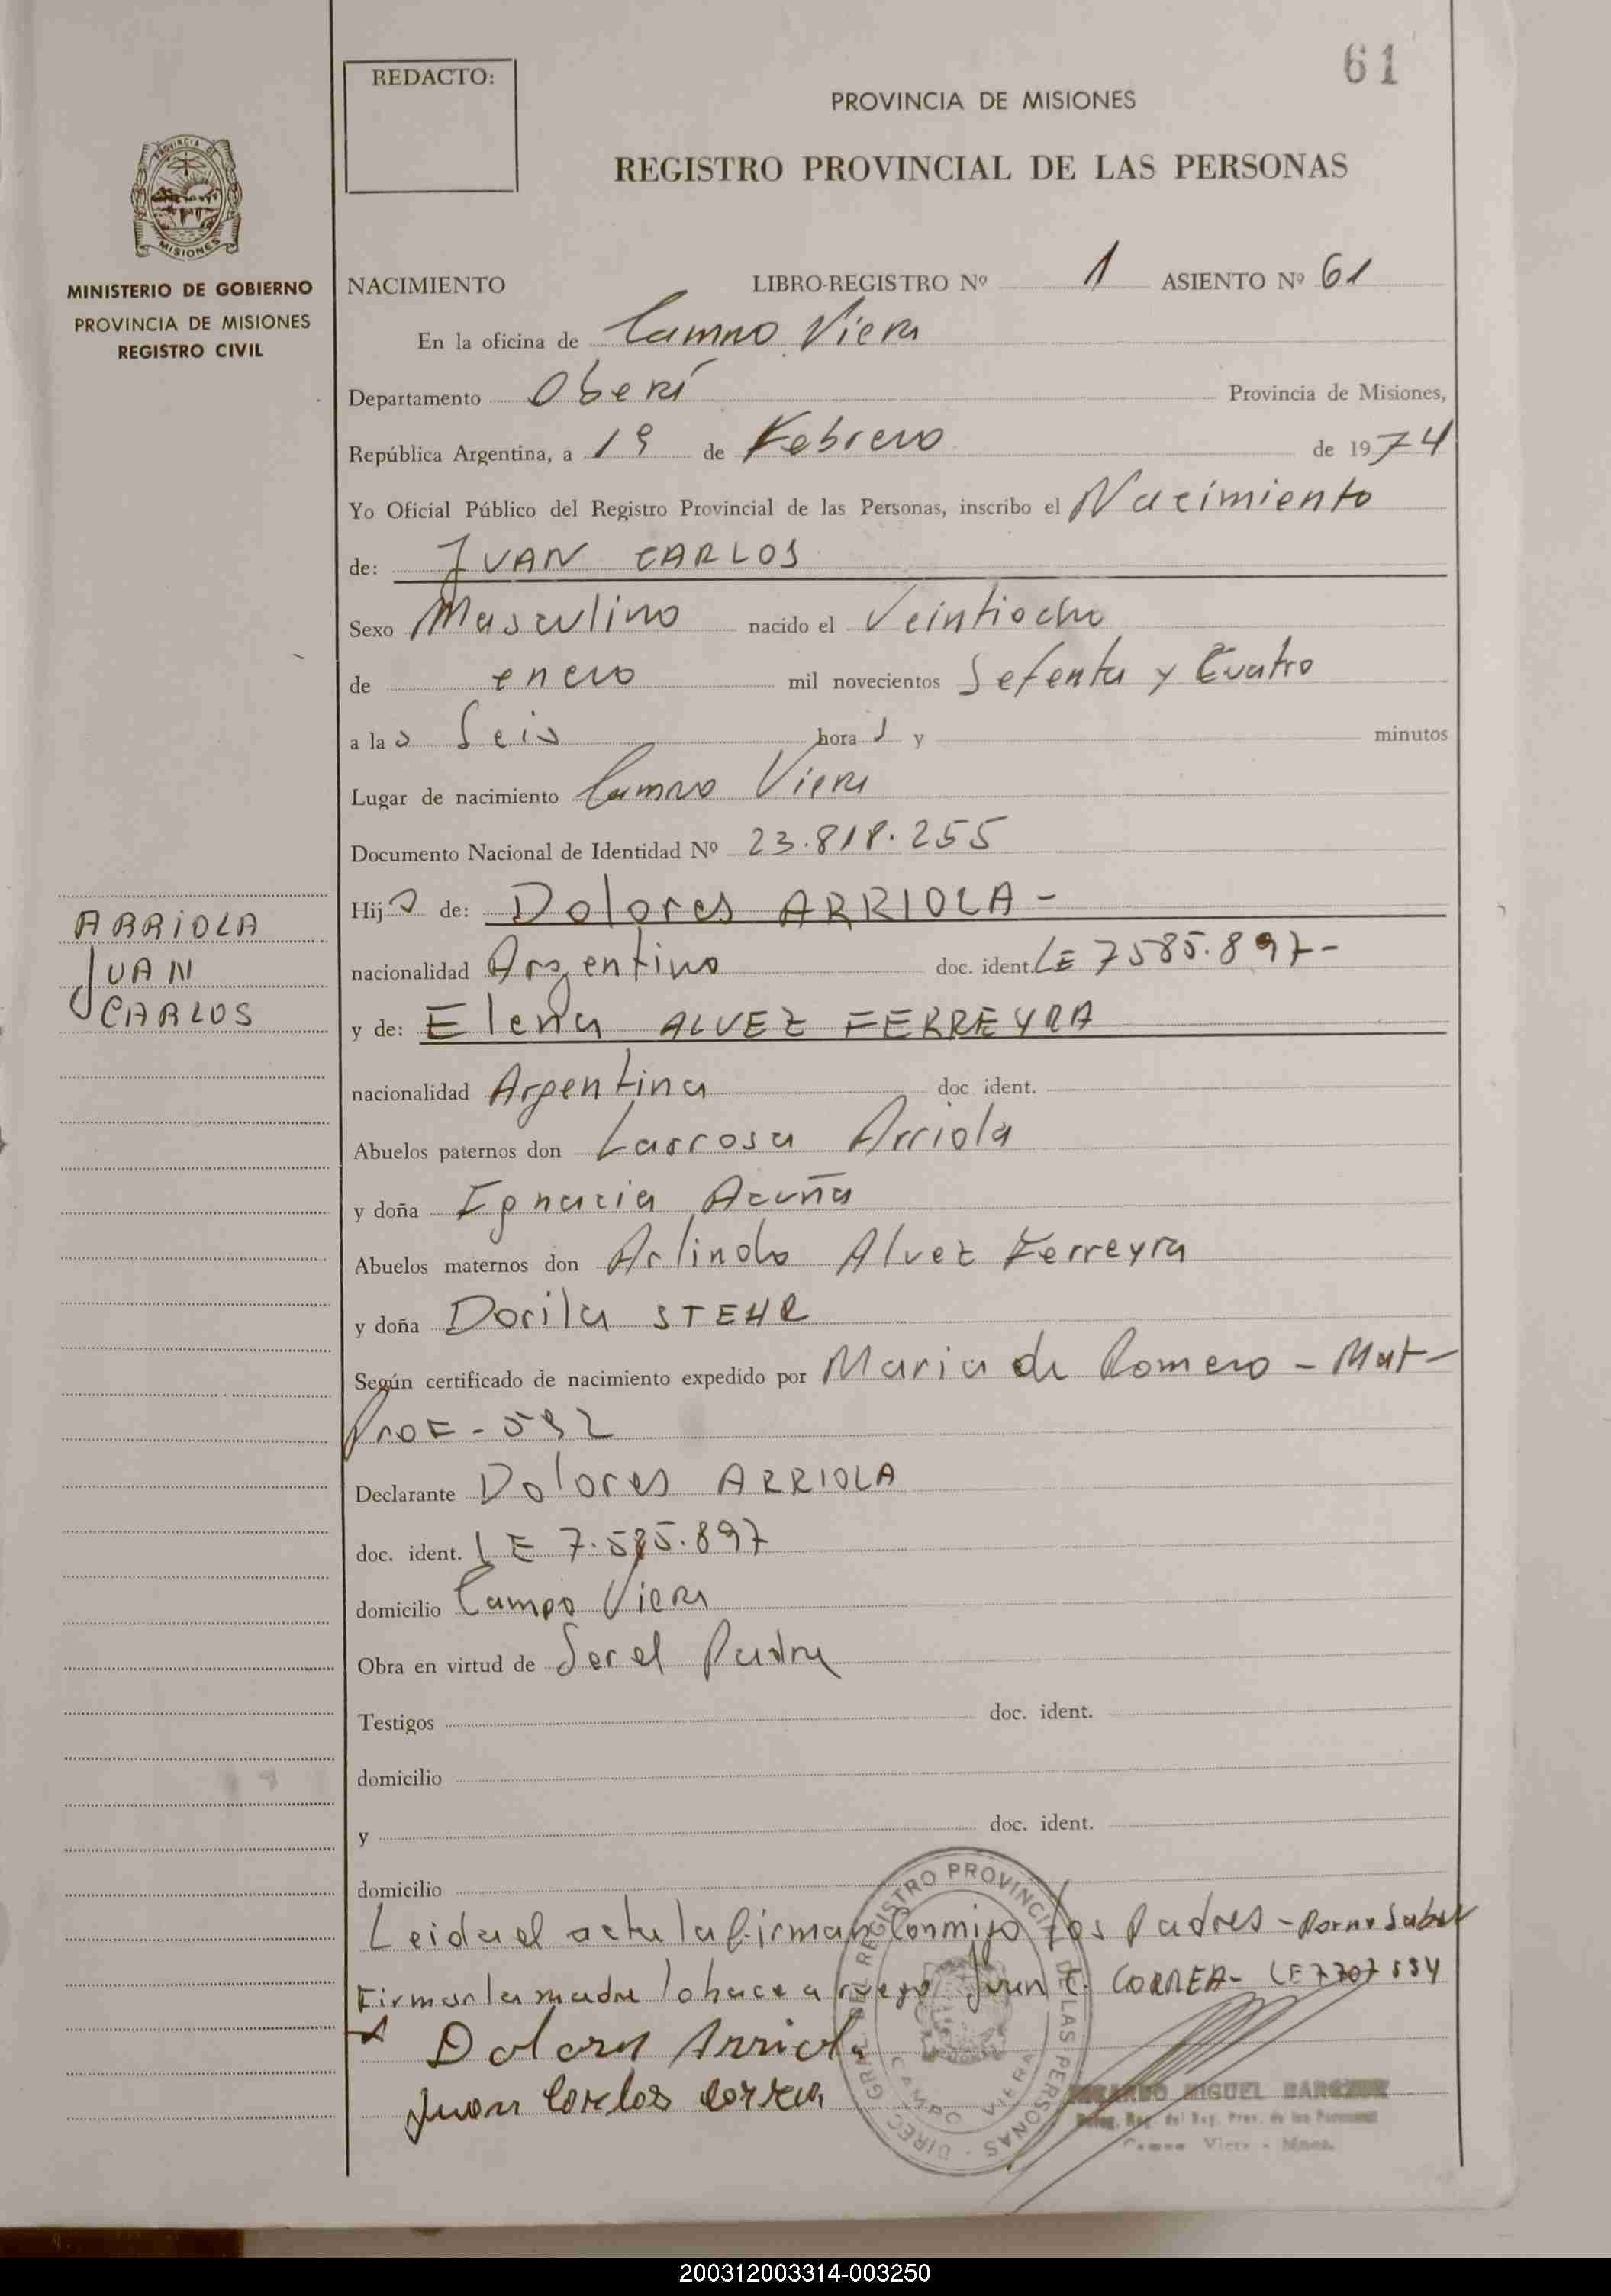 61
REDACTO:
PROVINCIA DE MISIONES
REGISTRO PROVINCIAL DE LAS PERSONAS
PROVINCIA DE
MISIONES
MINISTERIO DE GOBIERNO
PROVINCIA DE MISIONES
REGISTRO CIVIL
NACIMIENTO LIBRO-REGISTRO Nº 1 ASIENTO Nº 61
En la oficina de Campo Viera
Departamento Oberá Provincia de Misiones,
República Argentina, a 19 de Febrero de 1974
Yo Oficial Público del Registro Provincial de las Personas, inscribo el Nacimiento
de: JUAN CARLOS
Sexo Masculino nacido el Veintiocho
de enero mil novecientos Setenta y Cuatro
a las Seis horas y minutos
Lugar de nacimiento Campo Viera
Documento Nacional de Identidad Nº 23.818.255
Hijo de: Dolores ARRIOLA -
nacionalidad Argentino doc. ident. LE 7585.897-
ARRIOLA
JUAN
CARLOS
y de: Elena ALVEZ FERREYRA
nacionalidad Argentina doc ident.
Abuelos paternos don Larrosa Arriola
y doña Ignacia Acuña
Abuelos maternos don Arlindo Alvez Ferreyra
y doña Dorila STEHR
Según certificado de nacimiento expedido por Maria de Romero - Mat-
Prof - 592
Declarante Dolores ARRIOLA
doc. ident. LE 7.585.897
domicilio Campo Viera
Obra en virtud de Ser el Padre
Testigos doc. ident.
domicilio
y doc. ident.
domicilio
Leida el acta la firman Conmigo los Padres - Por no Saber
Firmar la madre lo hace a ruego Juan C. CORREA- LE 7707534
Dolores Arriola
Juan Carlos Correa
DIREC. GRAL. DEL REGISTRO PROVINCIAL DE LAS PERSONAS
CAMPO VIERA
MIGUEL
Campo Viera - Mnes.
200312003314-003250